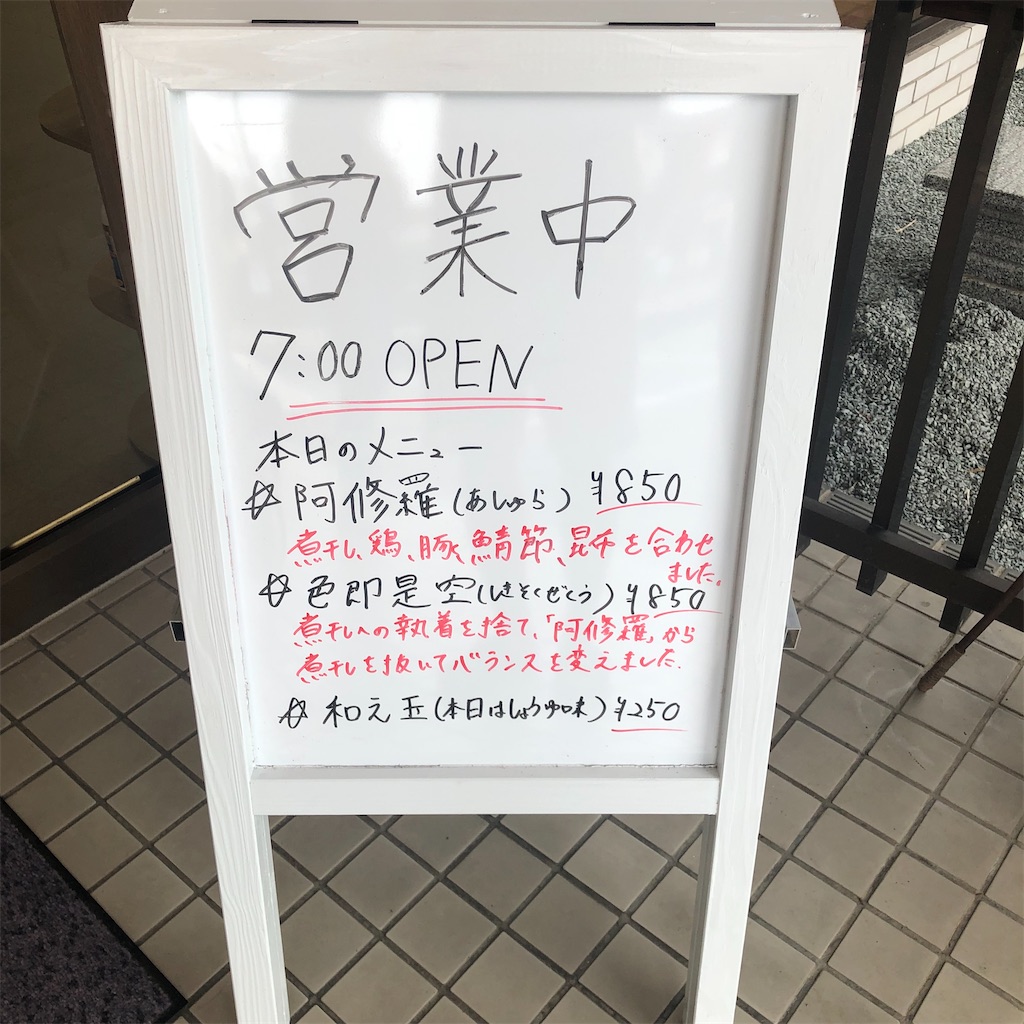 営業中
7:00 OPEN
本日のメニュー
☆阿修羅(あしゅら) ¥850
煮干し、鶏、豚、鯖節、昆布を合わせ
ました。
☆色即是空(しきそくぜくう) ¥850
煮干しへの執着を捨て、「阿修羅」から
煮干しを抜いてバランスを変えました。
☆和え玉(本日はしょうゆ味) ¥250